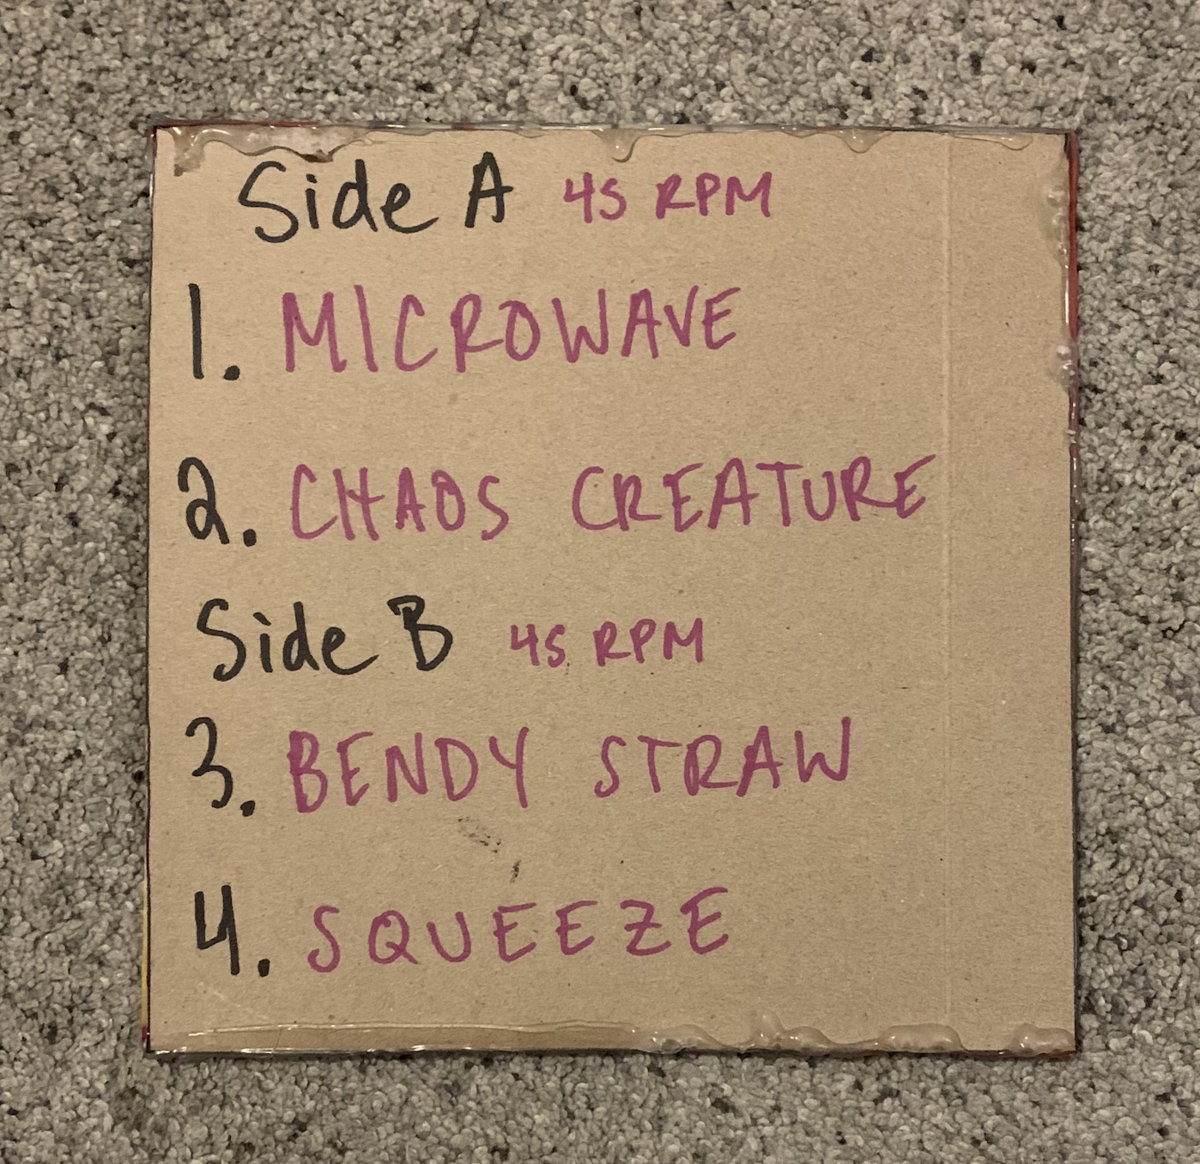 Side A 45 RPM
1. MICROWAVE
2. CHAOS CREATURE
Side B 45 RPM
3. BENDY STRAW
4. SQUEEZE